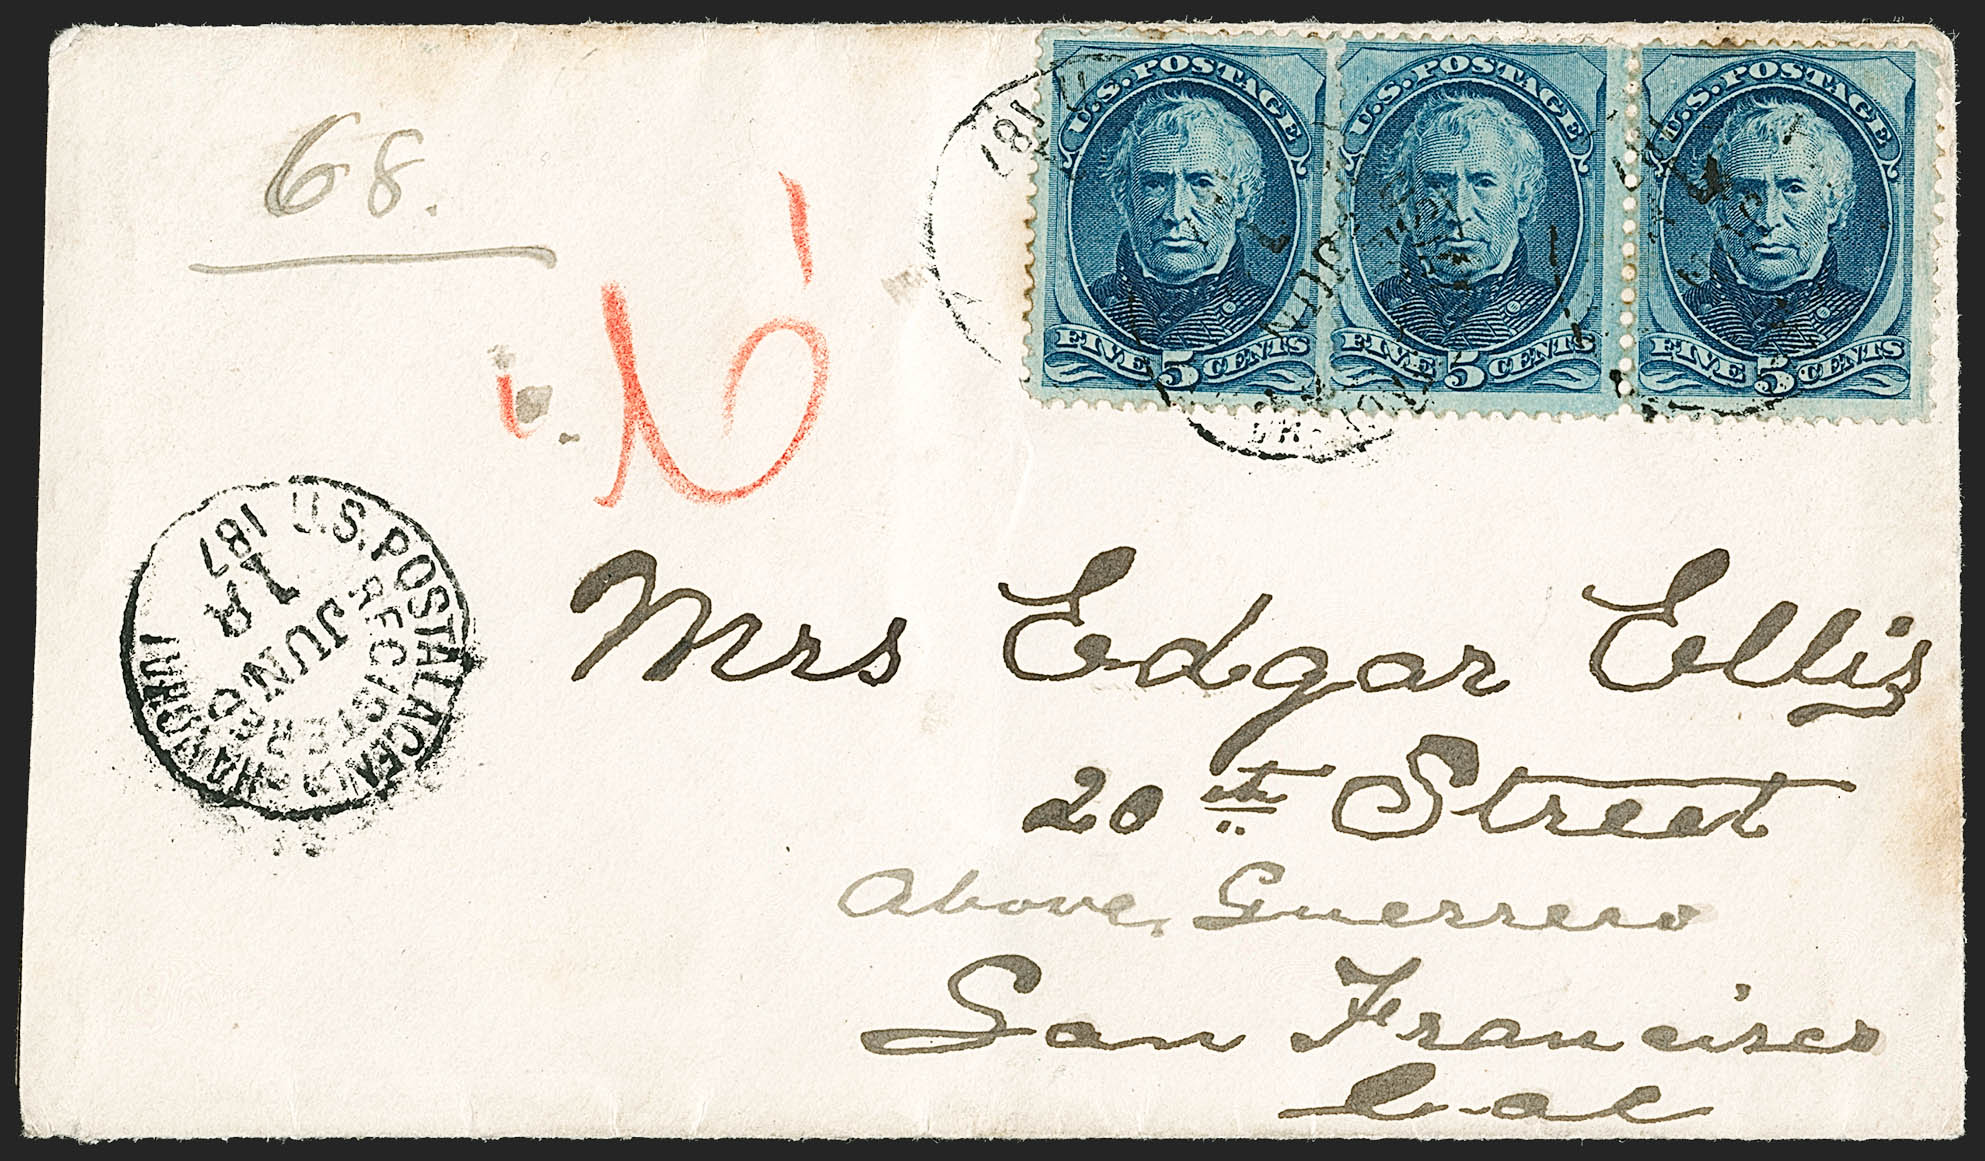 68.
U.S. POSTAGE
FIVE 5 CENTS
U.S. POSTAGE
FIVE 5 CENTS
U.S. POSTAGE
FIVE 5 CENTS
187
JUN
U.S. POSTAL AGENCY SHANGHAI
REGISTERED
JUN
187
Mrs Edgar Ellis
20th Street
Above Guerrero
San Francisco
Cal